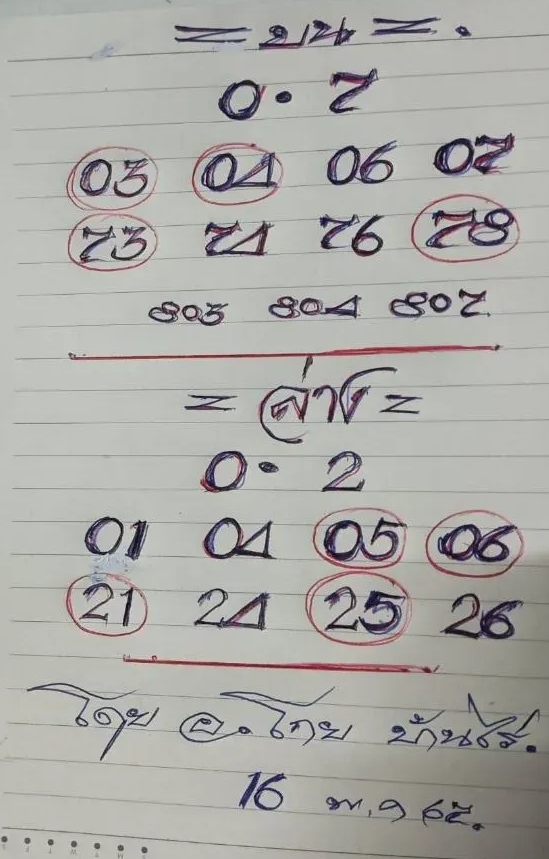 = บน =.
0 . 7
03 04 06 07
73 74 76 78
803 804 807
= ล่าง =
0 . 2
01 04 05 06
21 24 25 26
โดย อ. โทย บ้านไร่.
16 พ.ย 65.